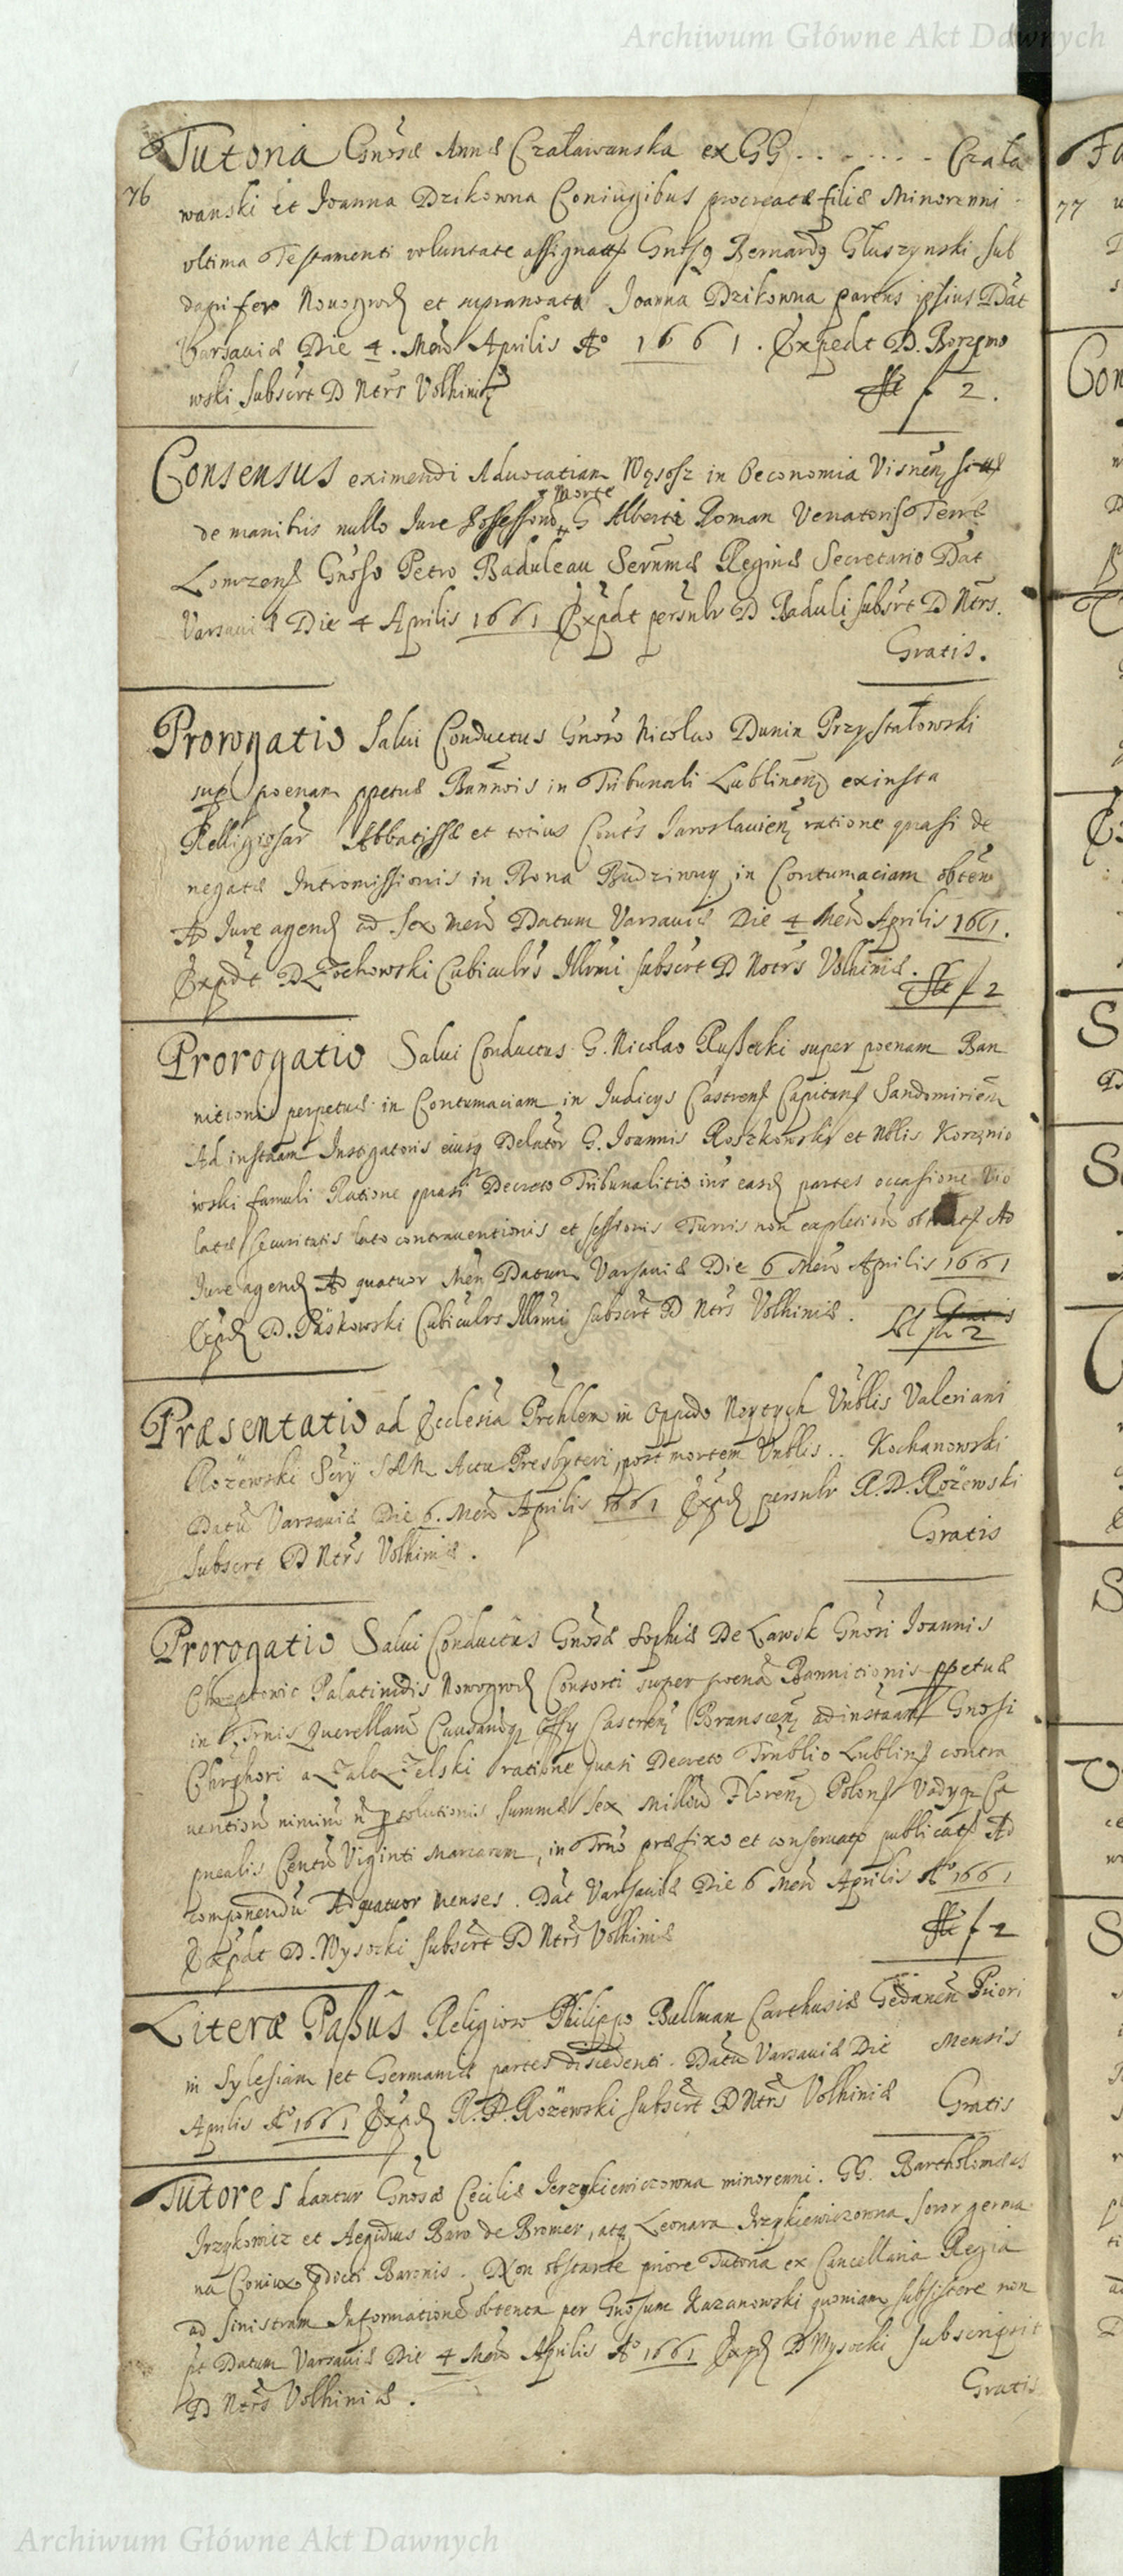 Archiwum Główne Akt Dawnych
Tutoria Gnosæ Annæ Czaławanska ex GG . . . . . . . Czała
76
wanski et Joanna Dzikowna Coniugibus procreatæ filiæ Minorenni
vltima Testamenti voluntate assignat Gnosq Bernardq Głuszynski sub
dapifero Nouogrod et supranoata Joanna Dzikonna parens ipsius Dat
Varsauiæ Die 4. Men Aprilis Ao 1661. Expedt D. Borzymo
wski Subscrt D Ntrs Volhiniæ f 2.
Consensus eximendi Aduocatiam Wąsosz in Oeconomia Visnen
Morte
de manibus nullo Jure Possessono G Alberti Roman Venatoris Terræ
Lomzens Gnoso Petro Baduleau Sernmæ Reginæ Secretario Dat
Varsauiæ Die 4 Aprilis 1661 Expdt persnlr D Baduli subsrt D Ntrs.
Gratis.
Prorogatio Salui Conductus Gnoso Nicolao Dunin Przystałowski
sup poenam ppetuæ Bannois in Tribunali Lublinen ex insta
Relligiosar Abbatissæ et totius Conts Jaroslauien ratione quasi de
negatæ Intromissionis in Bona Budziwuy in Contumaciam obten
Ad Jure agend ad sex men Datum Varsauiæ Die 4 Men Aprilis 1661.
Expdt D Żochowski Cubiculrs Illrmi subscrt D Notrs Volhiniæ. f 2
Prorogatio Salui Conductus G. Nicolao Rusecki super poenam Ban
nitionis perpetuæ in Contumaciam in Judicys Castrens Capitans Sandomirien
Ad instaam Instigatoris eiusq Delator G. Joannis Roszkowski et Nblis Korznio
wski famuli Ratione quasi Decreto Tribunalitio intr easd partes occasione vio
latæ securitatis lato contrauentionis et sessionis Turris non expletion Ad
Jure agend Ad quatuor Men Datum Varsauiæ Die 6 Men Aprilis 1661
Expd D. Paskowski Cubiculrs Illrmi subscrt D Ntrs Volhiniæ. 2
Præsentatio ad Ecclesia Prchlem in Oppido Vnblis Valeriani
Rożewski Actu Presbyteri, post mortem Vnblis . . Kochanowski
Datu Varsauiæ Die 6. Men Aprilis 1661 Expd persnlr R. D. Rożewski
Subscrt D Ntrs Volhiniæ. Gratis
Prorogatio Salui Conductus Gnosæ Sophiæ De Lawsk Gnosi Joannis
Chreptowic Palatinidis Nowogrod Consorti super poena Bannitionis ppetuæ
in Trnis Querellaru Causarq Offy Castren Branscen ad instaam Gnosi
Chrphori a Zale Zelski ratione quasi Decreto Trnblio Lublins contra
uention nimiru n psolutionis summæ sex Milliu Floren Polons Vadyq
Centu Viginti Marcarum, in Trno præfixo et conseruato publicat Ad
componendu Ad quatuor menses. Dat Varsauiæ Die 6 Men Aprilis Ao 1661
Expdt D. Wysocki subscrt D Ntrs Volhiniæ f 2
Literæ Paßus Religioso Philippo Bullman Carthusiæ Gedanen Priori
in Sylesiam et Germaniæ partes discedenti. Datu Varsauiæ Die Mensis
Aprilis Ao 1661 Expd R. D. Rożewski subscrt D Ntrs Volhiniæ Gratis
Tutores dantur Gnosæ Ceciliæ Jerzykiewiczowna minorenni. GG. Bartholomæus
Jrzykowicz et Aegidius Baro de Bromer, atq Leonara Jrzykiewiczonna soror germa
na Coniux pdicti Baronis. Non obstante priore Tutoria ex Cancellaria Regia
ad sinistram Informatione obtenta per Gnosum Kazanowski quoniam subsistere non
pt Datum Varsauiæ Die 4 Men Aprilis Ao 1661 Expd D Wysocki subscripsit
D Ntrs Volhiniæ. Gratis
77
Archiwum Główne Akt Dawnych